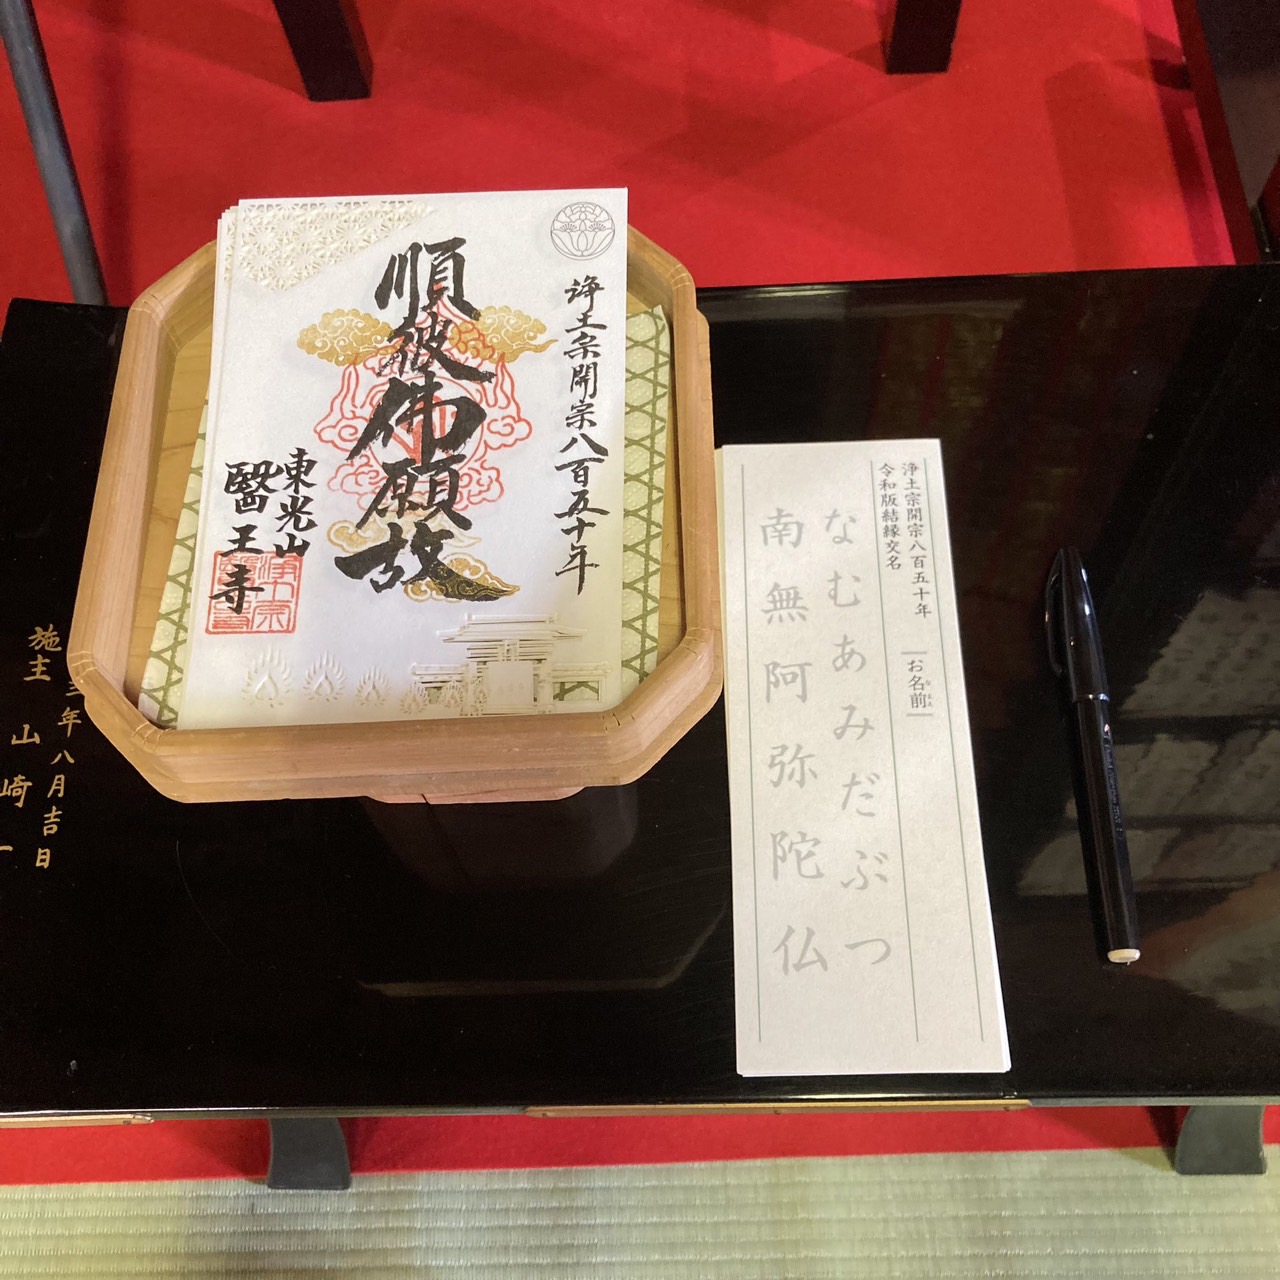 浄土宗開宗八百五十年
順彼佛願故
東光山
醫王寺
浄土宗
浄土宗開宗八百五十年
令和版結縁交名
お名前
なまえ
なむあみだぶつ
南無阿弥陀仏
三年八月吉日
施主 山崎